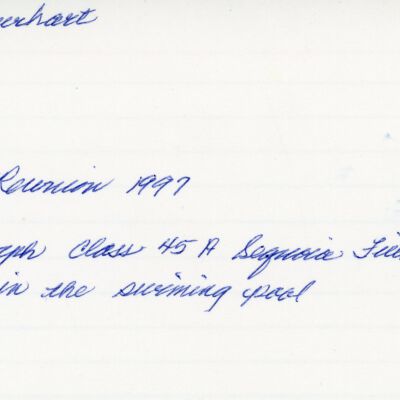 erhart
Reunion 1997
ph Class 45 A Sequoia Fie
in the swiming pool